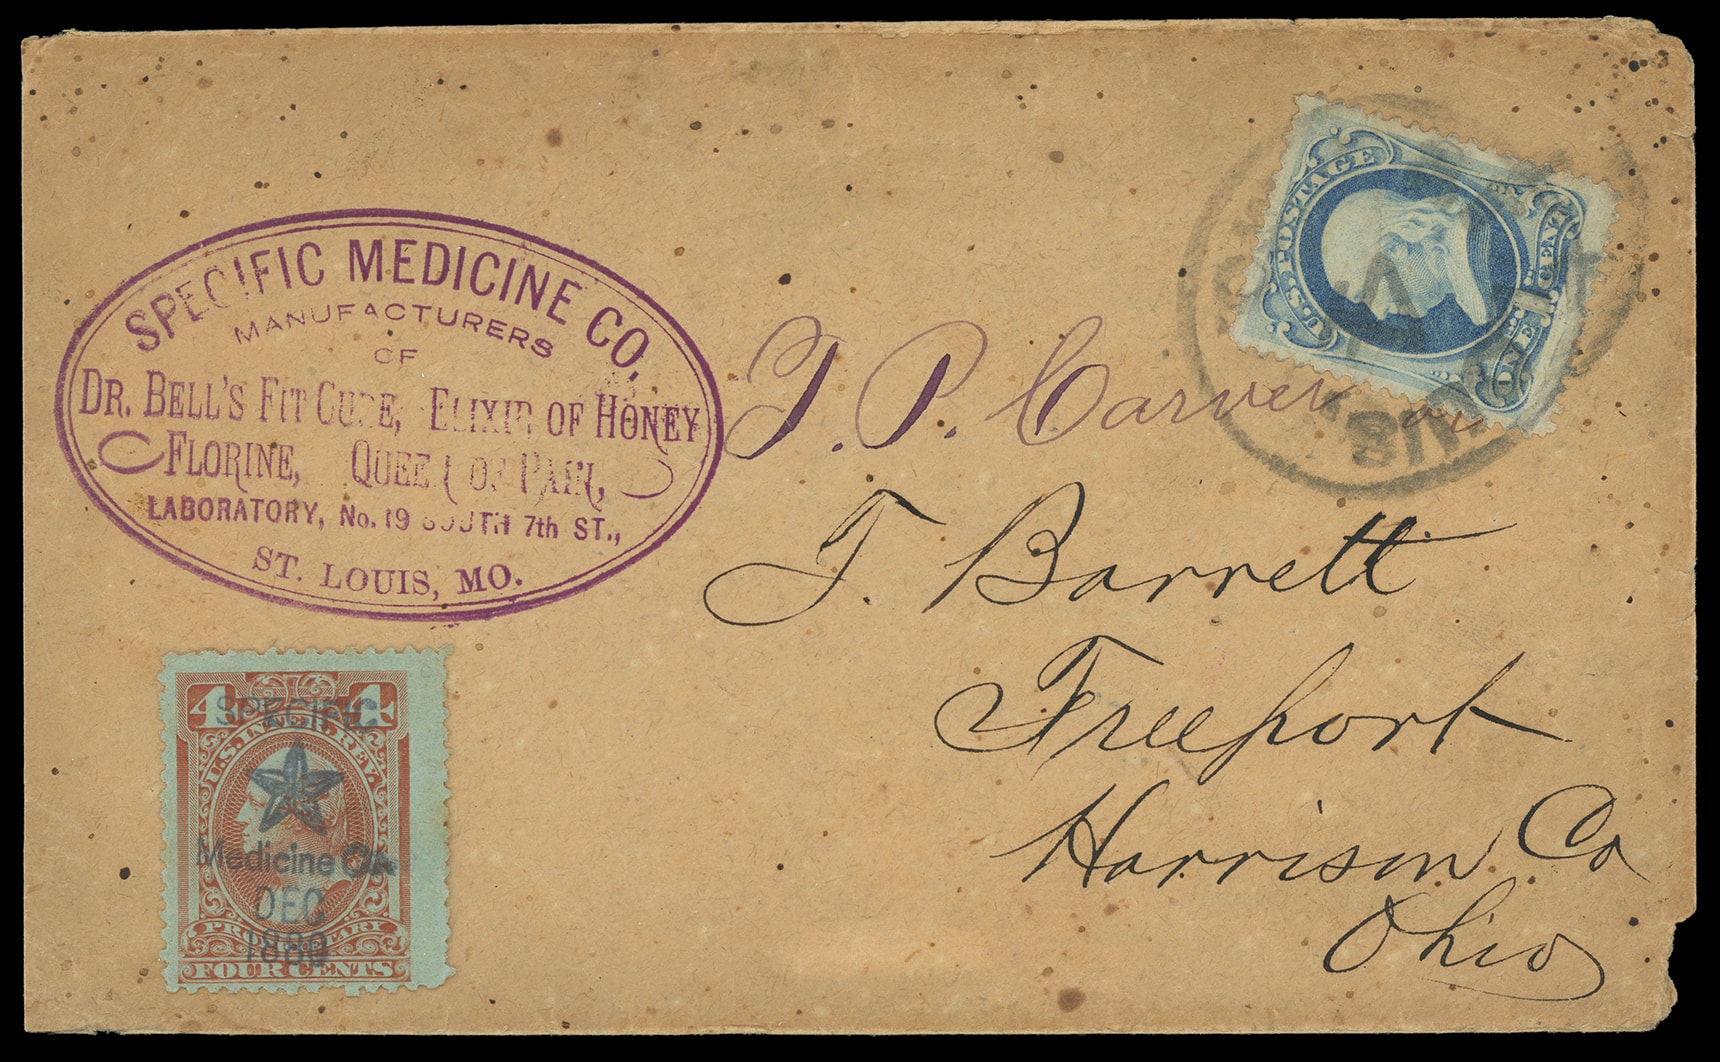 SPECIFIC MEDICINE CO,
MANUFACTURERS
OF
DR. BELL'S FIT CURE, ELIXIR OF HONEY
FLORINE, QUEEN OF PAIN,
LABORATORY, No. 19 SOUTH 7th ST.,
ST. LOUIS, MO.
U.S. POSTAGE
ONE 1 CENT
J. P. Carver or
T. Barrett
Freeport
Harrison Co
Ohio
4 4
U.S. INTER. REV.
PROPRIETARY
FOUR CENTS
SPECIFIC
Medicine Co.
DEC
1880